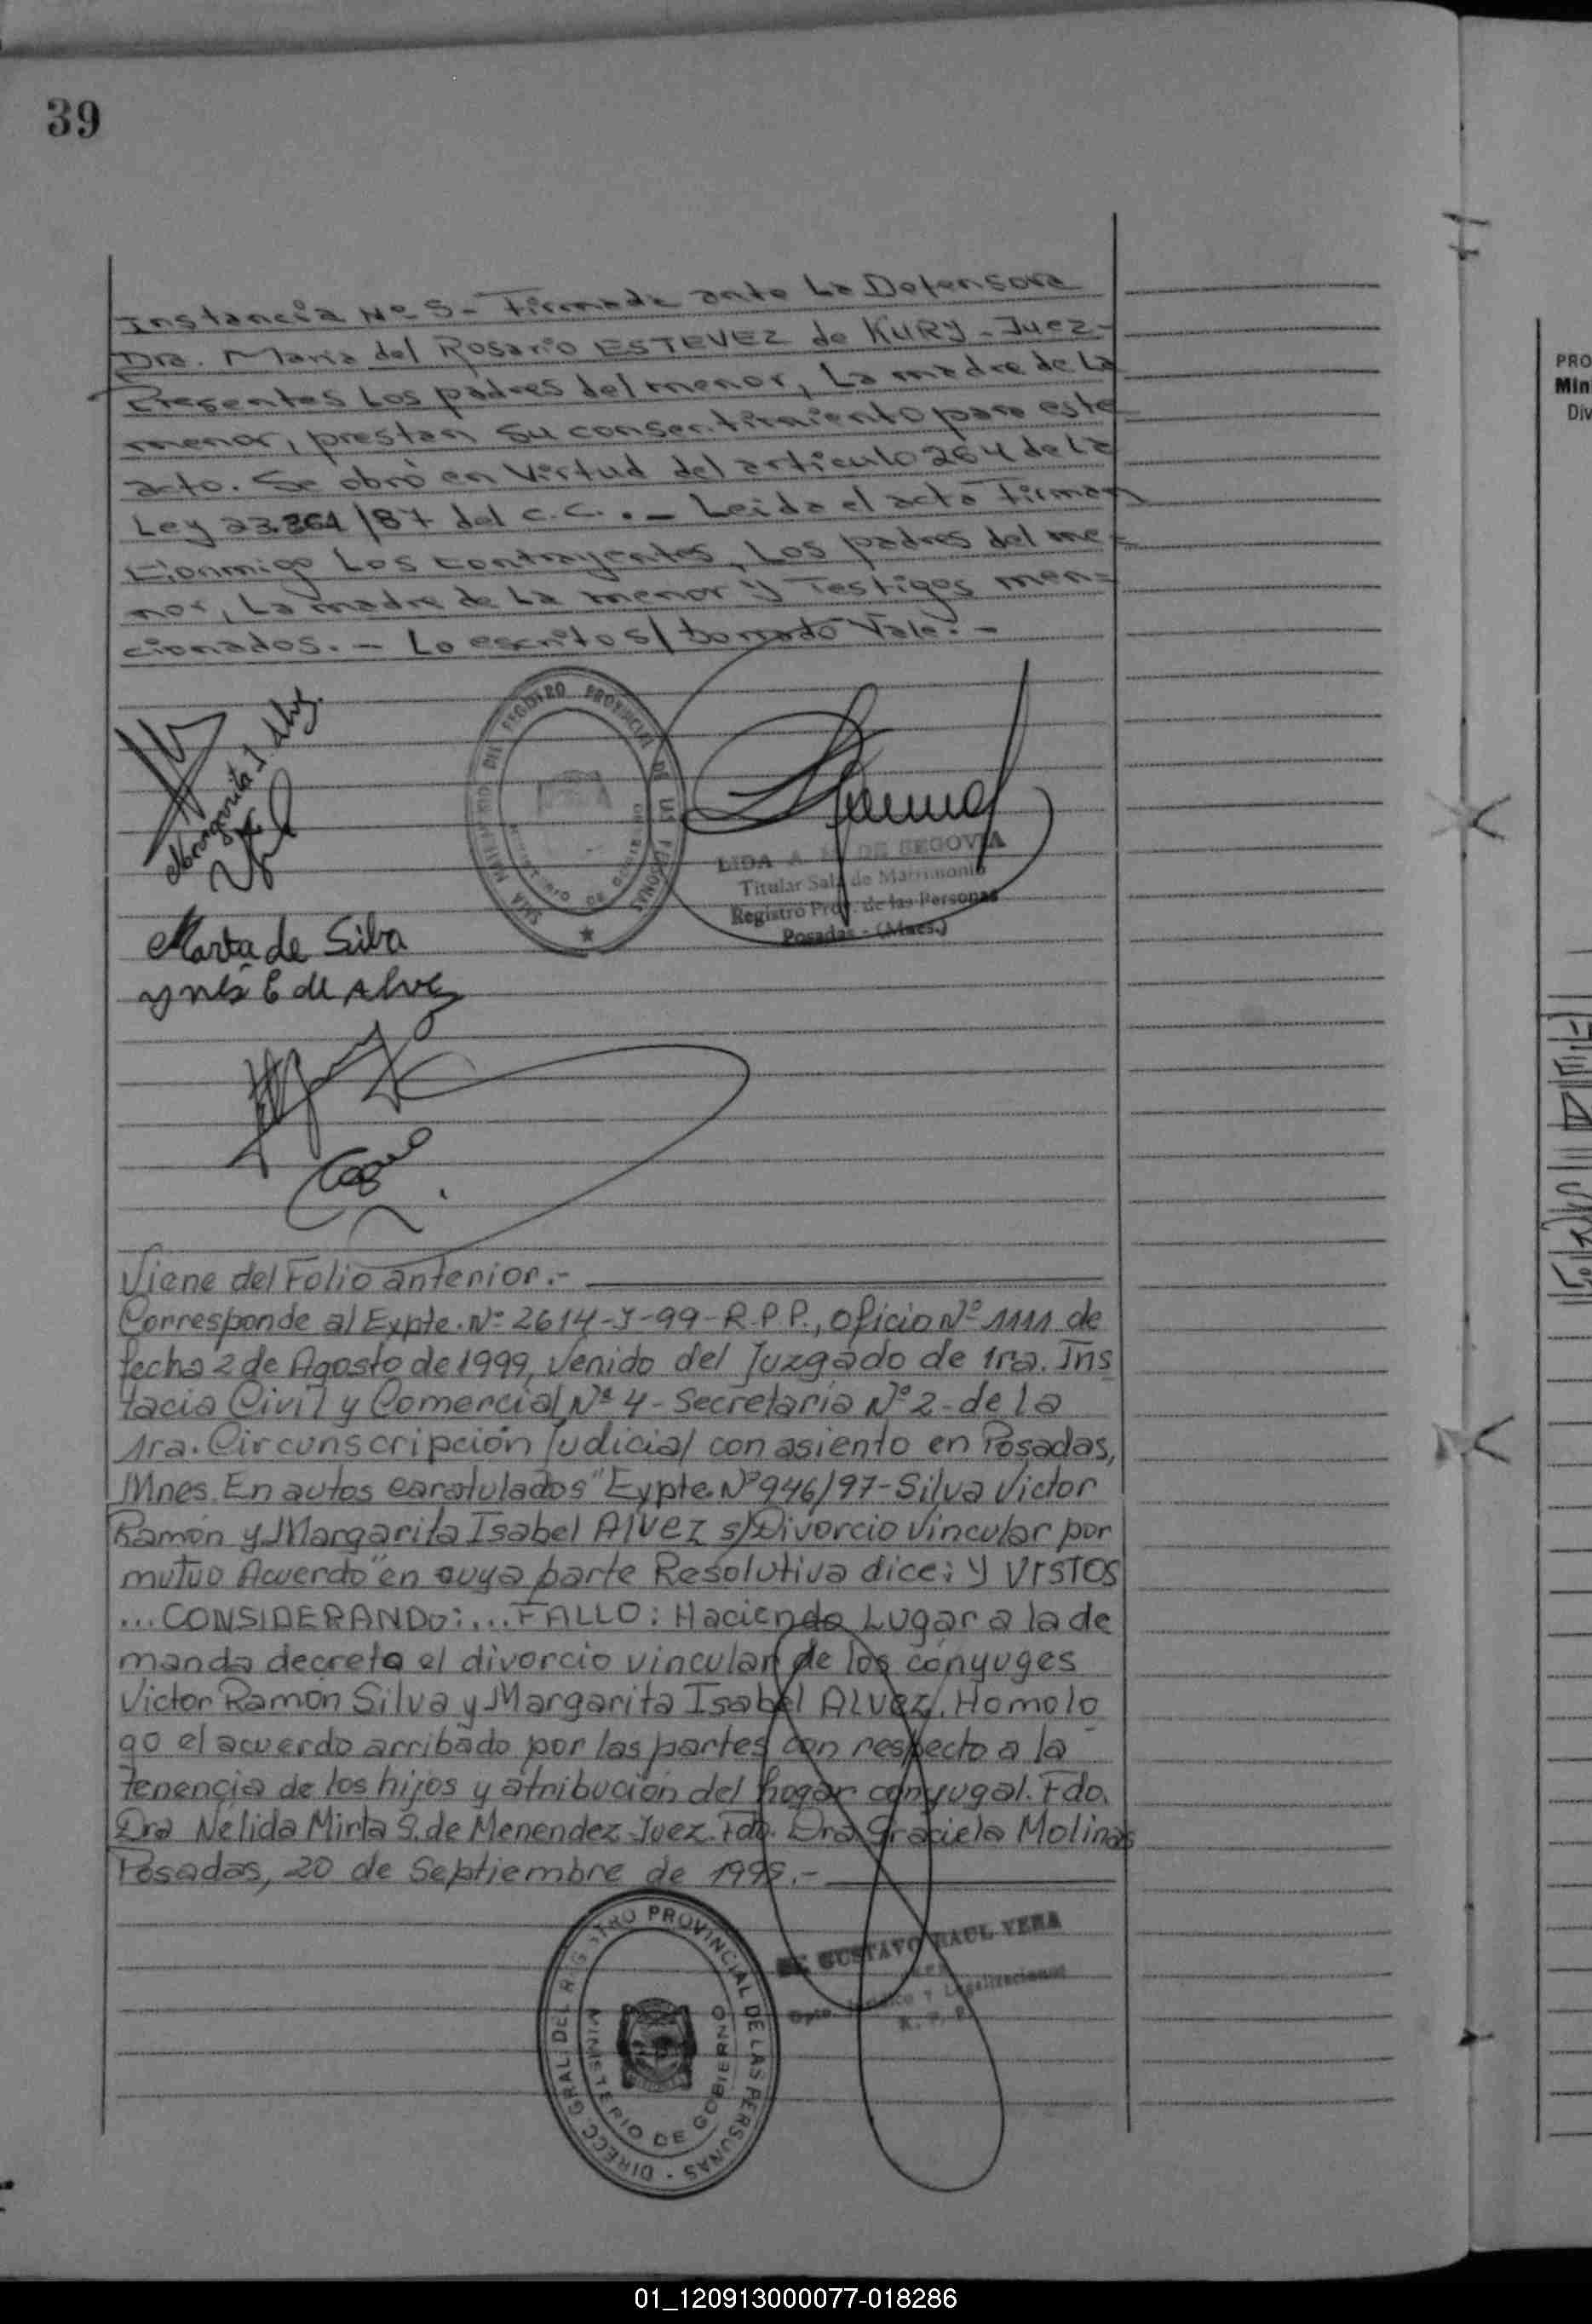 39
Instancia Nº 5 - Firmada ante La Defensora
Dra. María del Rosario ESTEVEZ de KURY - Juez -
Presentes Los padres del menor, La madre de La
menor, prestan su consentimiento para este
acto. Se obró en Virtud del articulo 264 de La
Ley 23.264/87 del C.C.. - Leida el acta Firman
Conmigo Los contrayentes, Los padres del me-
nor, La madre de La menor y Testigos men=
cionados. - Lo escrito s/ borrado Vale. -
Margarita I. Alvez
SALA MATRIMONIO DEL REGISTRO PROVINCIAL DE LAS PERSONAS
MINISTERIO DE GOBIERNO
LIDA A DE SEGOVIA
Titular Sala de Matrimonio
Registro Prov. de las Personas
Posadas - (Mnes.)
Marta de Silva
Ynés E de Alvez
Viene del Folio anterior.-
Corresponde al Expte. Nº 2614-J-99-R.P.P., Oficio Nº 1111 de
fecha 2 de Agosto de 1999, venido del Juzgado de 1ra. Ins
tacia Civil y Comercial Nº 4 - Secretaria Nº 2 - de la
1ra. Circunscripción Judicial con asiento en Posadas,
Mnes. En autos caratulados "Expte Nº 946/97 - Silva Victor
Ramón y Margarita Isabel Alvez s/Divorcio Vincular por
mutuo Acuerdo" en cuya parte Resolutiva dice: Y VISTOS
...CONSIDERANDO:...FALLO: Haciendo Lugar a la de
manda decreto el divorcio vincular de los cónyuges
Victor Ramón Silva y Margarita Isabel ALVEZ. Homolo
go el acuerdo arribado por las partes con respecto a la
tenencia de los hijos y atribución del hogar conyugal. Fdo.
Dra Nélida Mirta S. de Menendez Juez. Fdo. Dra Graciela Molinas
Posadas, 20 de Septiembre de 1999.-
DIRECC. GRAL. DEL REGISTRO PROVINCIAL DE LAS PERSONAS
MINISTERIO DE GOBIERNO
GUSTAVO RAUL VERA
Dpto. y Legalizaciones
R. P. P.
PRO
Min
Div
01_120913000077-018286